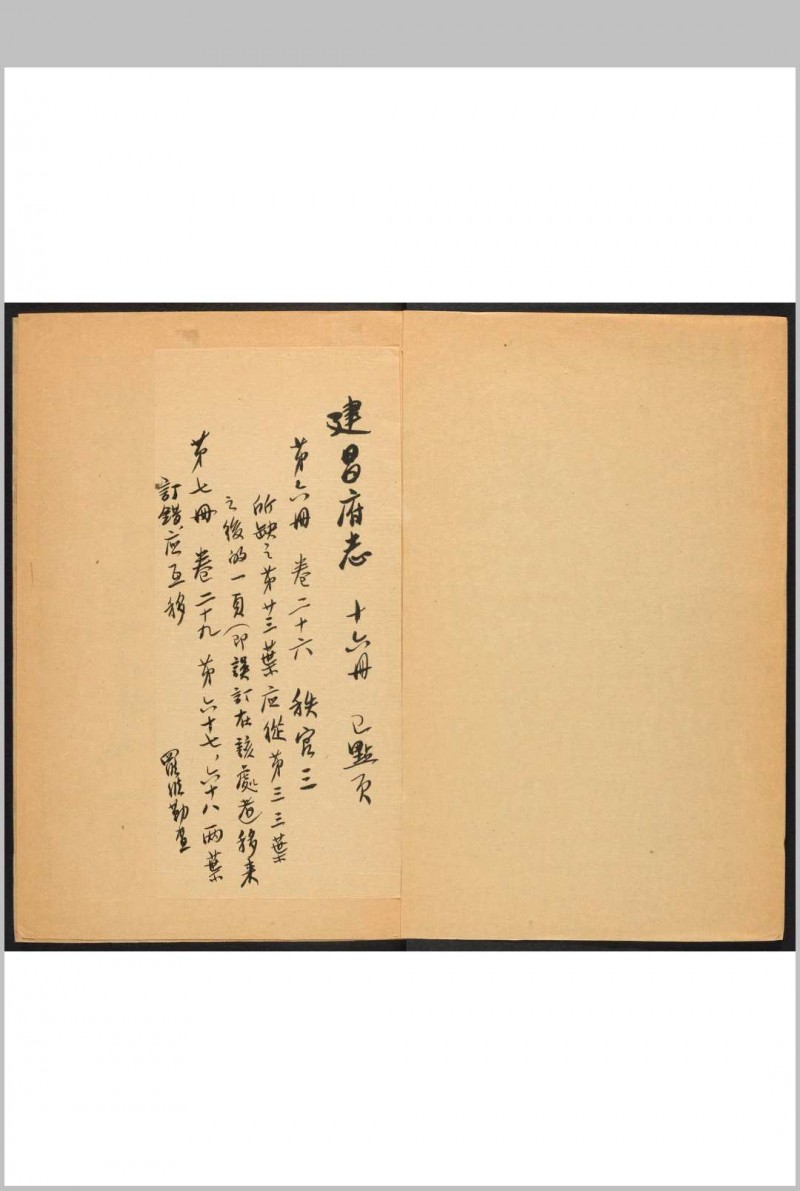 建昌府志 十六册 已點页
第六册 卷二十六 秩官三
所缺之第廿三葉应從第三三葉
之後的一頁(即誤訂在該處者)移来
第七册 卷二十九 第六十七,六十八兩葉
訂錯,应互移
羅